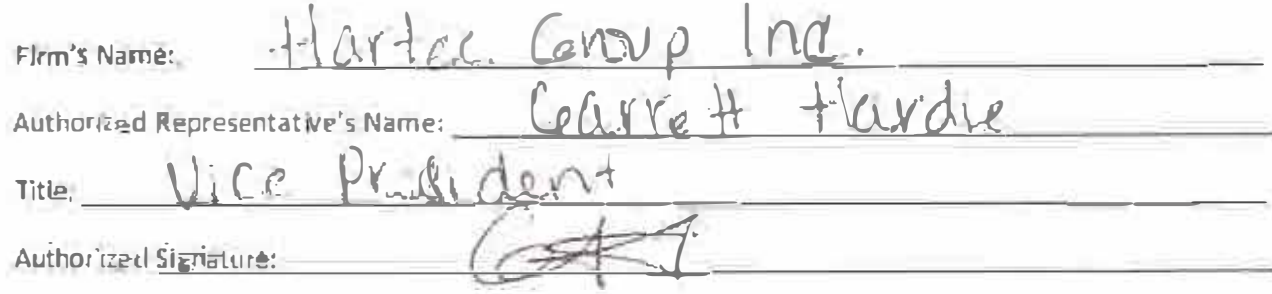 Firm's Name: Hartec Group Inc.
Authorized Representative's Name: Garrett Hardie
Title: Vice President
Authorized Signature: